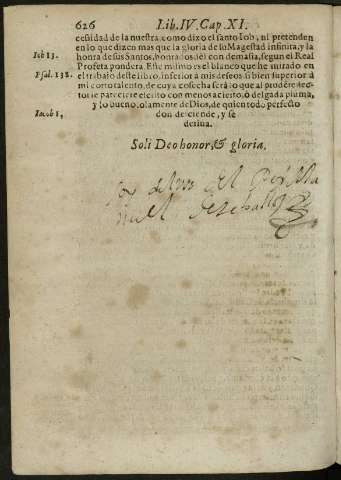 626 Lib. IV. Cap. XI.
cesidad de la nuestra, como dixo el santo Iob, ni pretenden
en lo que dizen mas que la gloria de su Magestad infinita, y la
Iob 13. honra de sus Santos, honrados del con demasia, segun el Real
Profeta pondera. Este mismo es el blanco que he mirado en
Psal. 138. el trabajo deste libro, inferior à mis deseos, si bien superior à
mi corto talento, de cuya cosecha serà lo que al prudente lec-
tor le pareciere escrito con menos acierto, ò delgada pluma,
y lo bueno, solamente de Dios, de quien todo perfecto
Iacob 1. don deciende, y se
deriua.
Soli Deo honor, & gloria.
Soy de